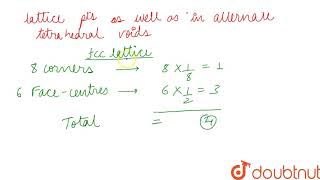 lattice pts as well as in alternate
tetrahedral voids
fcc lattice
8 corners → 8 × 1/8 = 1
6 Face-centres → 6 × 1/2 = 3
Total = 4
doubtnut